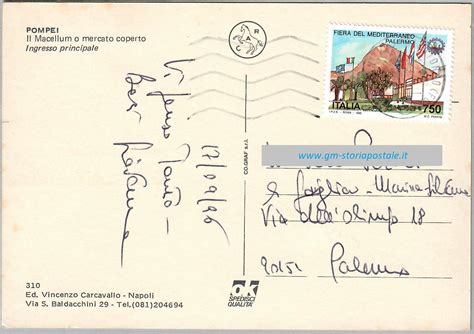 POMPEI
Il Macellum o mercato coperto
Ingresso principale
CRAC
FIERA DEL MEDITERRANEO
PALERMO
ITALIA 750
www.gm-storiapostale.it
Vi penso tanto
Baci
17/09/96
CO.GRAF s.r.l.
e famiglia
Via dell'olimpo 18
90151 Palermo
310
Ed. Vincenzo Carcavallo - Napoli
Via S. Baldacchini 29 - Tel.(081)204694
OK
SPEDISCI
QUALITA'